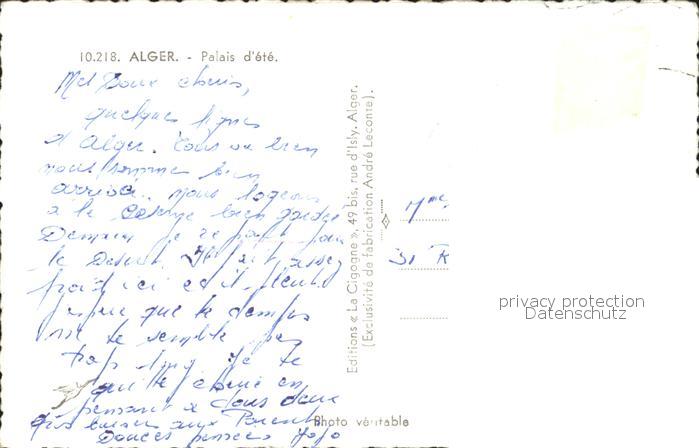 10.218. ALGER. - Palais d'été.
chéris,
quelques lignes
d'Alger. Tous va bien
nous sommes bien
arrivé. nous logeons
à la caserne bien gardée
Demain je repart pour
le Desert. Il fait assez
froid ici et il pleut
J'espère que le temps
ne te semble pas
trop long. Je te
quitte chérie en
pensant a tous deux
gros baiser aux Parents
Douces pensées Jojo
Editions « La Cigogne », 49 bis, rue d'Isly, Alger.
(Exclusivité de fabrication André Leconte).
Mme
31 R
privacy protection
Datenschutz
Photo véritable